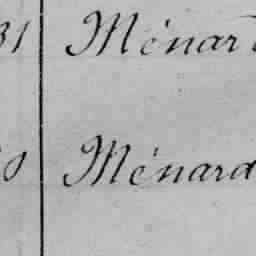 31 Ménard
Ménard